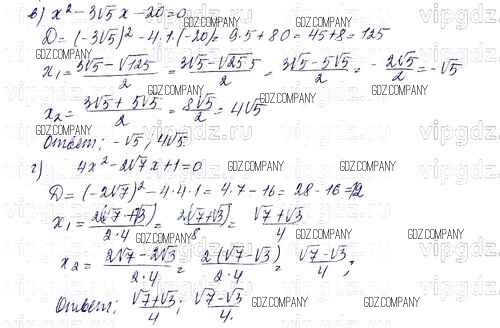 в) x² - 3√5 x - 20 = 0
D = (-3√5)² - 4·1·(-20) = 9·5 + 80 = 45 + 8 = 125
x₁ = (3√5 - √125)/2 = (3√5 - √25·5)/2 = (3√5 - 5√5)/2 = - 2√5/2 = -√5
x₂ = (3√5 + 5√5)/2 = 8√5/2 = 4√5
Ответ: -√5; 4√5.
г) 4x² - 2√7 x + 1 = 0
D = (-2√7)² - 4·4·1 = 4·7 - 16 = 28 - 16 = 12
x₁ = 2(√7 + √3)/2·4 = 2(√7 + √3)/8 = (√7 + √3)/4
x₂ = (2√7 - 2√3)/2·4 = 2(√7 - √3)/2·4 = (√7 - √3)/4;
Ответ: (√7 + √3)/4; (√7 - √3)/4.
GDZ.COMPANY
vipgdz.ru